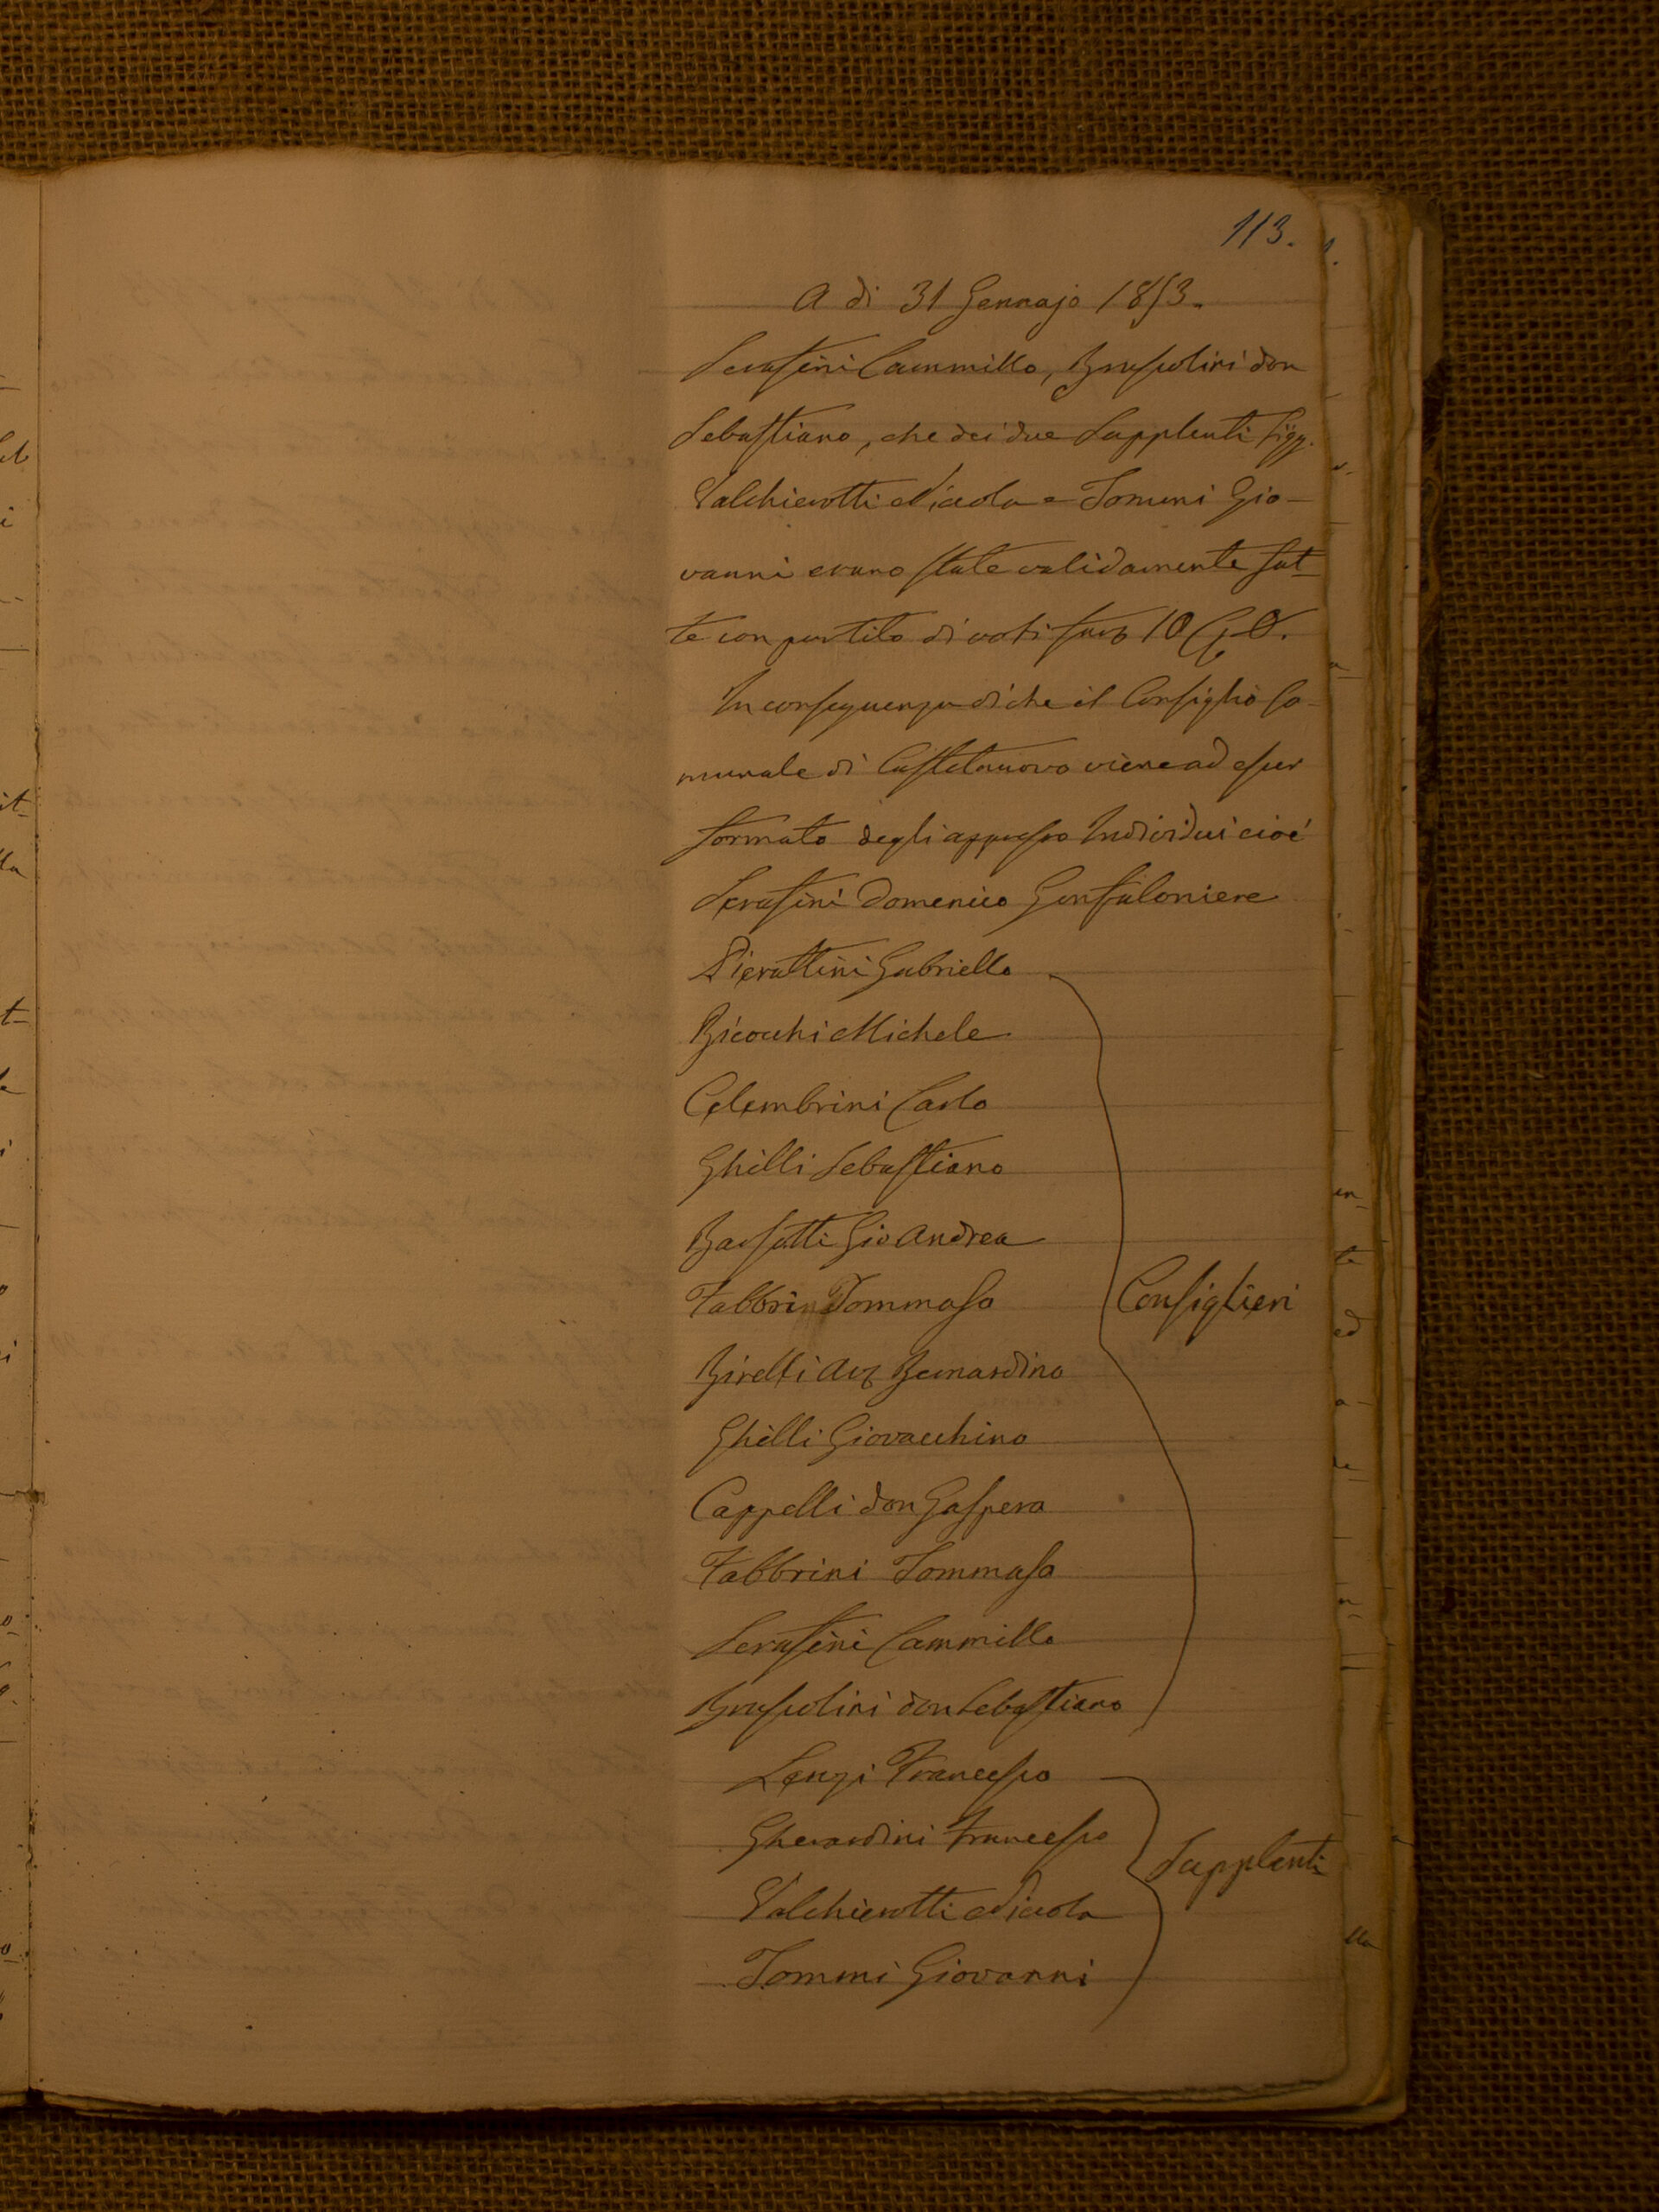 113.
A dì 31 Gennajo 1853.
Serafini Cammillo, Bruscolini don
Sebastiano, che dei due Supplenti Sigg.
Valchierotti Niccola e Tommi Gio-
vanni erano state validamente fat-
te con partito di voti favi 10 C. 0.
In conseguenza di che il Consiglio Co-
munale di Castelnuovo viene ad esser
formato degli appresso Individui cioè
Serafini Domenico Gonfaloniere
Pierattini Gabriello
Bicocchi Michele
Celembrini Carlo
Ghilli Sebastiano
Barsotti Gio Andrea
Fabbrini Tommaso
Consiglieri
Birelli Avv Bernardino
Ghilli Giovacchino
Cappelli don Gaspero
Fabbrini Tommaso
Serafini Cammillo
Bruscolini don Sebastiano
Lenzi Francesco
Gherardini Francesco
Supplenti
Valchierotti Niccola
Tommi Giovanni